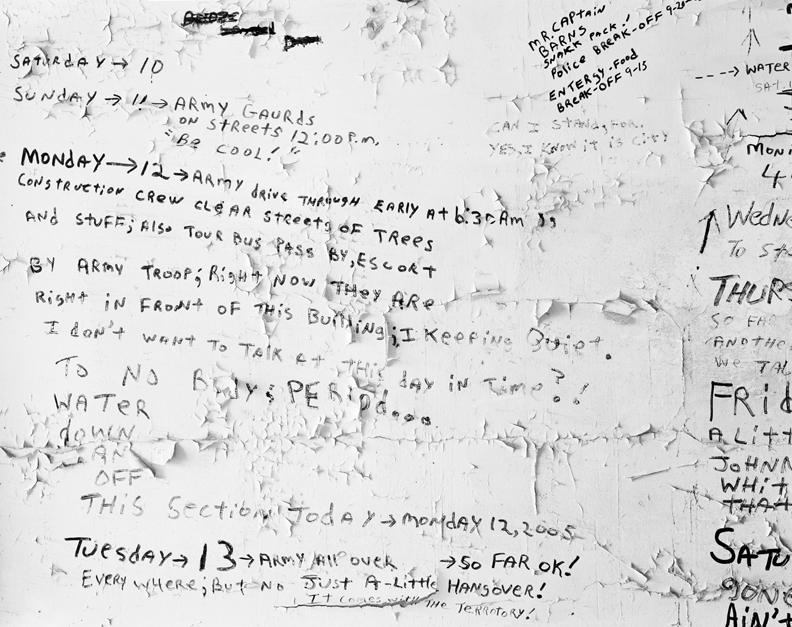 SATURDAY → 10
SUNDAY → 11 → ARMY GAURDS
ON STREETS 12:00 P.m.
"BE COOL!"
MONDAY → 12 → ARMY DRIVE THROUGH EARLY AT 6:30 Am
CONSTRUCTION CREW CLEAR STREETS OF TREES
AND STUFF; ALSO TOUR BUS PASS BY, ESCORT
BY ARMY TROOP; RIGHT NOW THEY ARE
RIGHT IN FRONT OF THIS BUILDING; I KEEPING QUIET.
I don't WANT TO TALK AT THIS DAY IN TIME?!
TO NO BODY; PERIOD....
WATER
DOWN
AN
OFF
THIS Section TODAY → MONDAY 12, 2005
TUESDAY → 13 → ARMY All OVER → SO FAR OK!
EVERYWHERE; BUT NO JUST A-LITTLE HANGOVER!
IT COMES WITH THE TERRITORY!
MR. CAPTAIN
BARNS
SNACK PACK!
POLICE BREAK-OFF
ENTERGY-FOOD
BREAK-OFF 9-15
CAN I STAND, FOR
YES, I KNOW IT IS CITY
---> WATER
MON
4
↑ Wedne
TO
THURS
SO FAR
ANOTHE
WE TAL
FRId
A LITT
JOHNN
WHIT
THAT
SATU
GONE
AIN'T